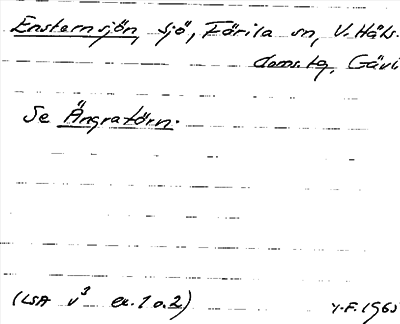 Ensternsjön, sjö, Färila sn, V. Häls.
doms.tg, Gävl
Se Ängratörn.
(LSA V³ ex. 1 o. 2) Y.F. 1965